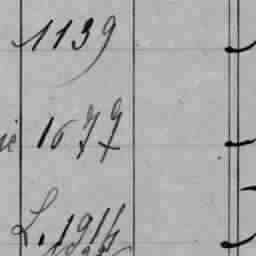 1139
1677
L. 1914